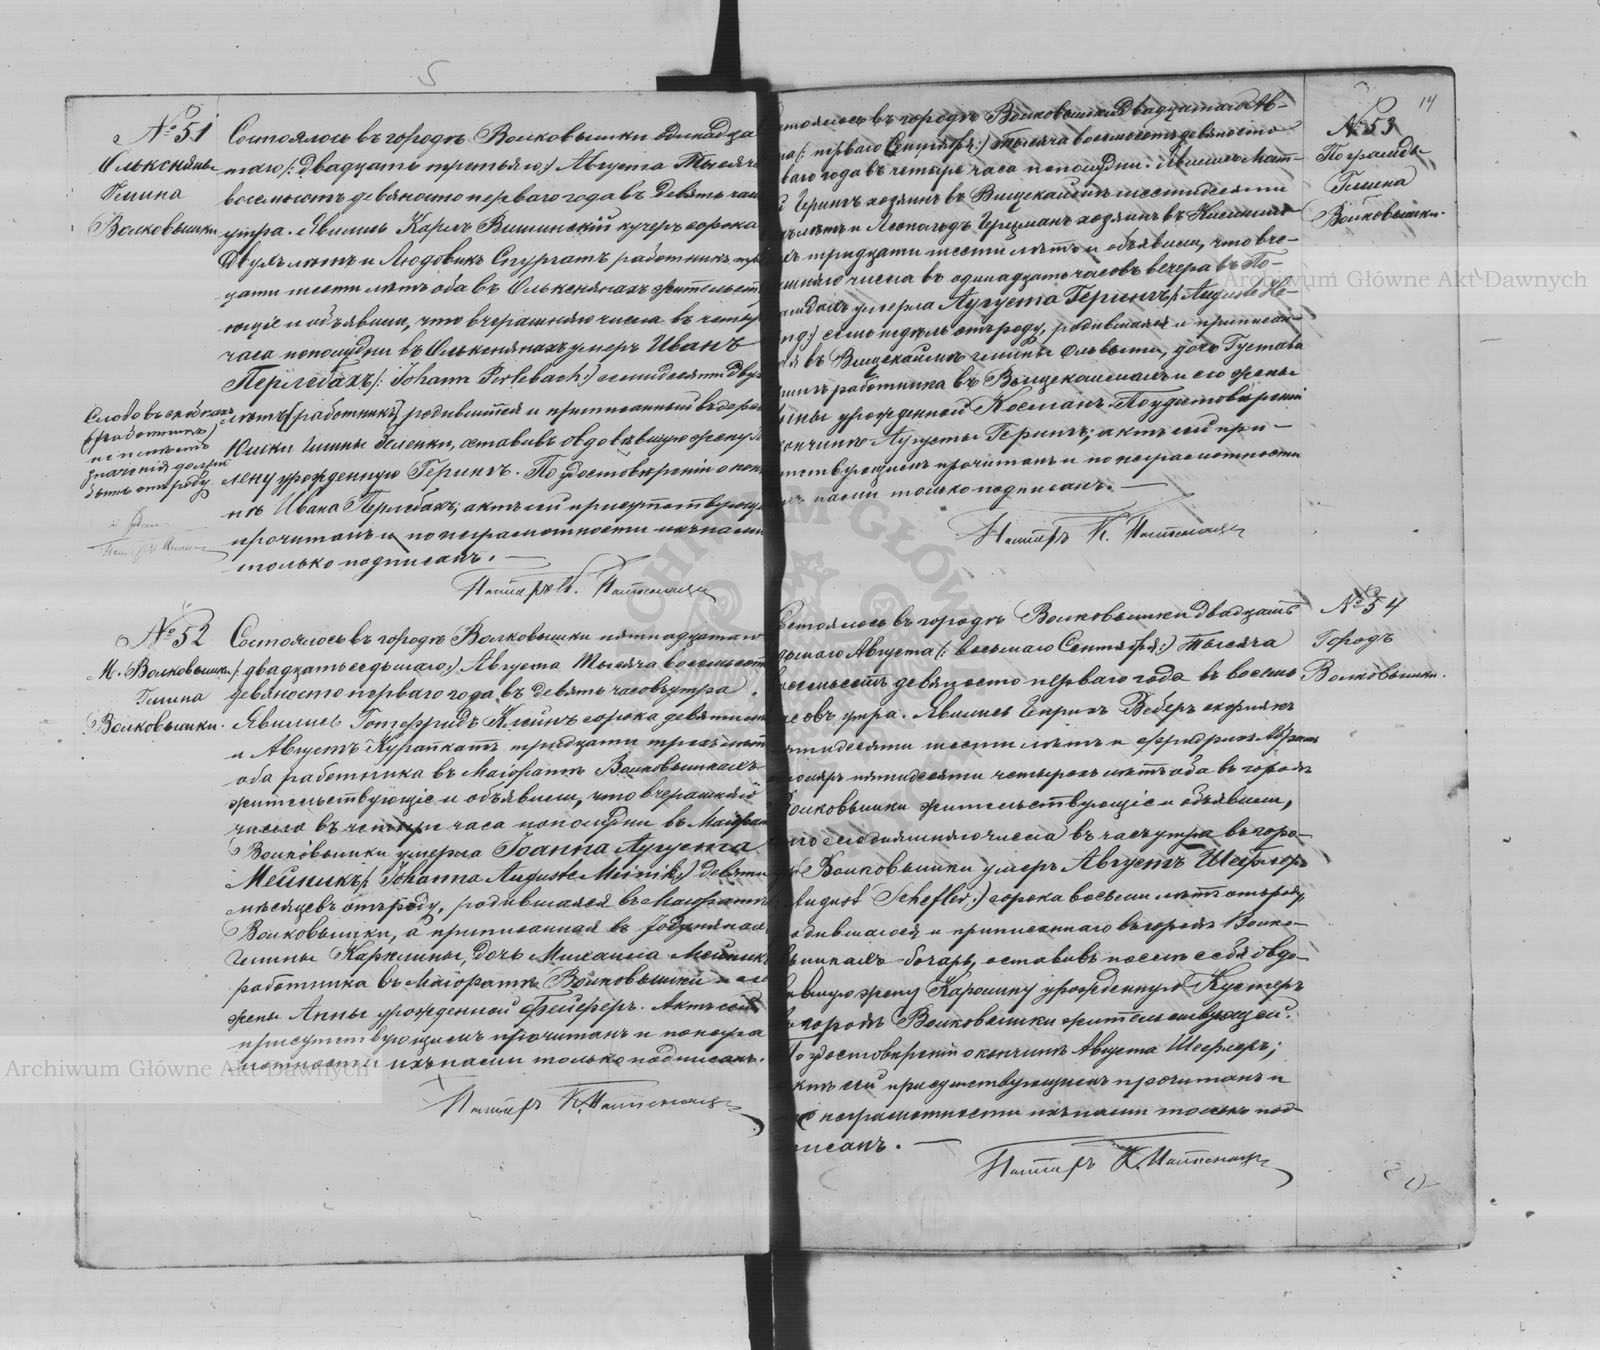 № 51
Ольксняны
Гмина
Волковышки
Состоялось въ городѣ Волковышки одинадца
таго /: двадцать третьяго :/ Августа Тысяча
восемьсотъ девяносто перваго года въ девять час
утра. Явились Карлъ Вишинскій кучеръ сорока
двухъ лѣтъ и Людовикъ Спургатъ работникъ три
цати шести лѣтъ оба въ Ольксняхахъ жительст
ющіе и объявили, что вчерашняго числа въ четыр
часа пополудни въ Олькснянахъ умеръ Иванъ
Перлебахъ /: Johann Perlebach :/ семидесяти двух
лѣтъ [работникъ] родившійся и приписанный въ дерев
гмины оставивъ овдовѣвшую жену
лену урожденную Герингъ. По удостовѣреніи о кон
нѣ Ивана Перлебахъ; актъ сей присутствующ
прочитанъ и по неграмотности ихъ нами
только подписанъ. —
Слово въ скобкахъ
(работникъ)
не имѣетъ
значенія должно
быть отъ роду
Пасторъ К.
№ 52
М. Волковышки
Гмина
Волковышки.
Состоялось въ городѣ Волковышки пятнадцатаго
/: двадцать седьмаго :/ Августа Тысяча восемьсот
девяносто перваго года, въ девять часовъ утра.
Явились Готфридъ Клинъ сорока девяти
и Августъ Курапкатъ тридцати трехъ лѣтъ
оба работника въ Маіоратѣ Волковышкахъ
жительствующіе и объявили, что вчерашняго
числа въ четыре часа пополудни въ Маіорат
Волковышки умерла Іоанна Августа
Мейникъ /: Johanna Auguste Meinik :/ девяти
мѣсяцевъ отъ роду, родившаяся въ Маіоратѣ
Волковышки, а приписанная въ
гмины Карклины, дочь Михаила Мейникъ
работника въ Маіоратѣ Волковышки и его
жены Анны урожденной Фейферъ. Актъ сей
присутствующимъ прочитанъ и по негра
мотности ихъ нами только подписанъ.
Пасторъ К.
14
№ 53
Гмина
Волковышки.
стоялось въ городѣ Волковышки двадцатаго Ав-
та /: перваго Сентября :/ Тысяча восемьсотъ девяносто
ваго года въ четыре часа пополудни. Явились Мат-
Герингъ хозяинъ въ шестидесяти
лѣтъ и Леопольдъ Герцманъ хозяинъ въ
хъ тридцати шести лѣтъ и объявили, что вче-
шняго числа въ одинадцать часовъ вечера въ По-
умерла Августа Герингъ /: Auguste He-
ng :/ семь недѣль отъ роду, родившаяся и приписан-
ая въ гмины Ольвита, дочь Густава
рингъ работника въ и его жены
ины урожденной Косманъ. По удостовѣреніи
кончинѣ Августы Герингъ; актъ сей при-
тствующимъ прочитанъ и по неграмотности
ихъ нами только подписанъ. —
Пасторъ К.
№ 54
Городъ
Волковышки.
Состоялось въ городѣ Волковышки двадцать
седьмаго Августа /: восьмаго Сентября :/ Тысяча
восемьсотъ девяносто перваго года въ восемь
часовъ утра. Явились Генрихъ Веберъ
пятидесяти шести лѣтъ и Фридрихъ Абрам
столяръ пятидесяти четырехъ лѣтъ оба въ городѣ
Волковышки жительствующіе и объявили,
что сегодняшняго числа въ часъ утра въ горо-
дѣ Волковышки умеръ Августъ Шефлеръ
August Schefler :/ сорока восьми лѣтъ отъ роду,
одившагося и приписаннаго въ городѣ Волко-
вышкахъ бочаръ, оставивъ послѣ себя овдо-
вѣвшую жену Каролину урожденную Кустеръ
въ городѣ Волковышки жительствующей.
По удостовѣреніи о кончинѣ Августа Шефлеръ;
актъ сей присутствующимъ прочитанъ и
по неграмотности ихъ нами только под-
писанъ. —
Пасторъ К.
Archiwum Główne Akt Dawnych
Archiwum Główne Akt Dawnych